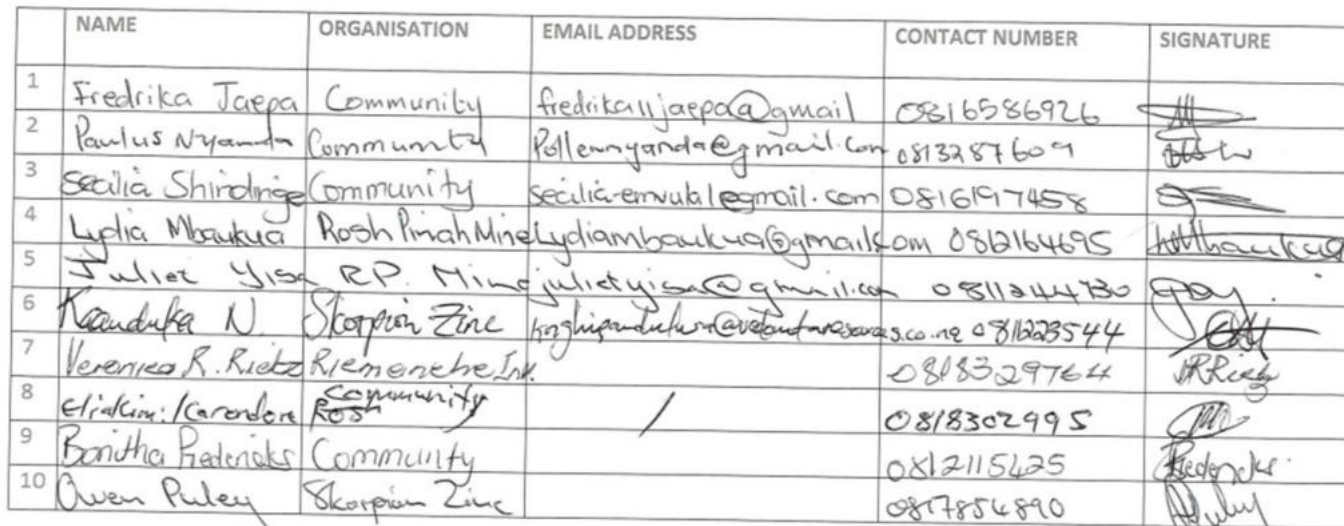 NAME ORGANISATION EMAIL ADDRESS CONTACT NUMBER SIGNATURE
1 Fredrika Jaepa Community fredrika11jaepa@gmail 0816586926
2 Paulus Nyanda Community Pollennyanda@gmail.com 0813287609
3 Secilia Shindinge Community 0816197458
4 Lydia Mbaukua Rosh Pinah Mine Lydiambaukua@gmail.com 0812164695 Mbaukua
5 Juliet Yisa RP. Mine julietyisa@gmail.com 0811244730
6 N. Skorpion Zinc 0811223544
7 Veronica R. Rietz 0818329764 VRRietz
8 Eliakim Karondore Community / 0818302995
9 Bonitha Fredericks Community 0812115425 Fredericks
10 Owen Puley Skorpion Zinc 0817854890